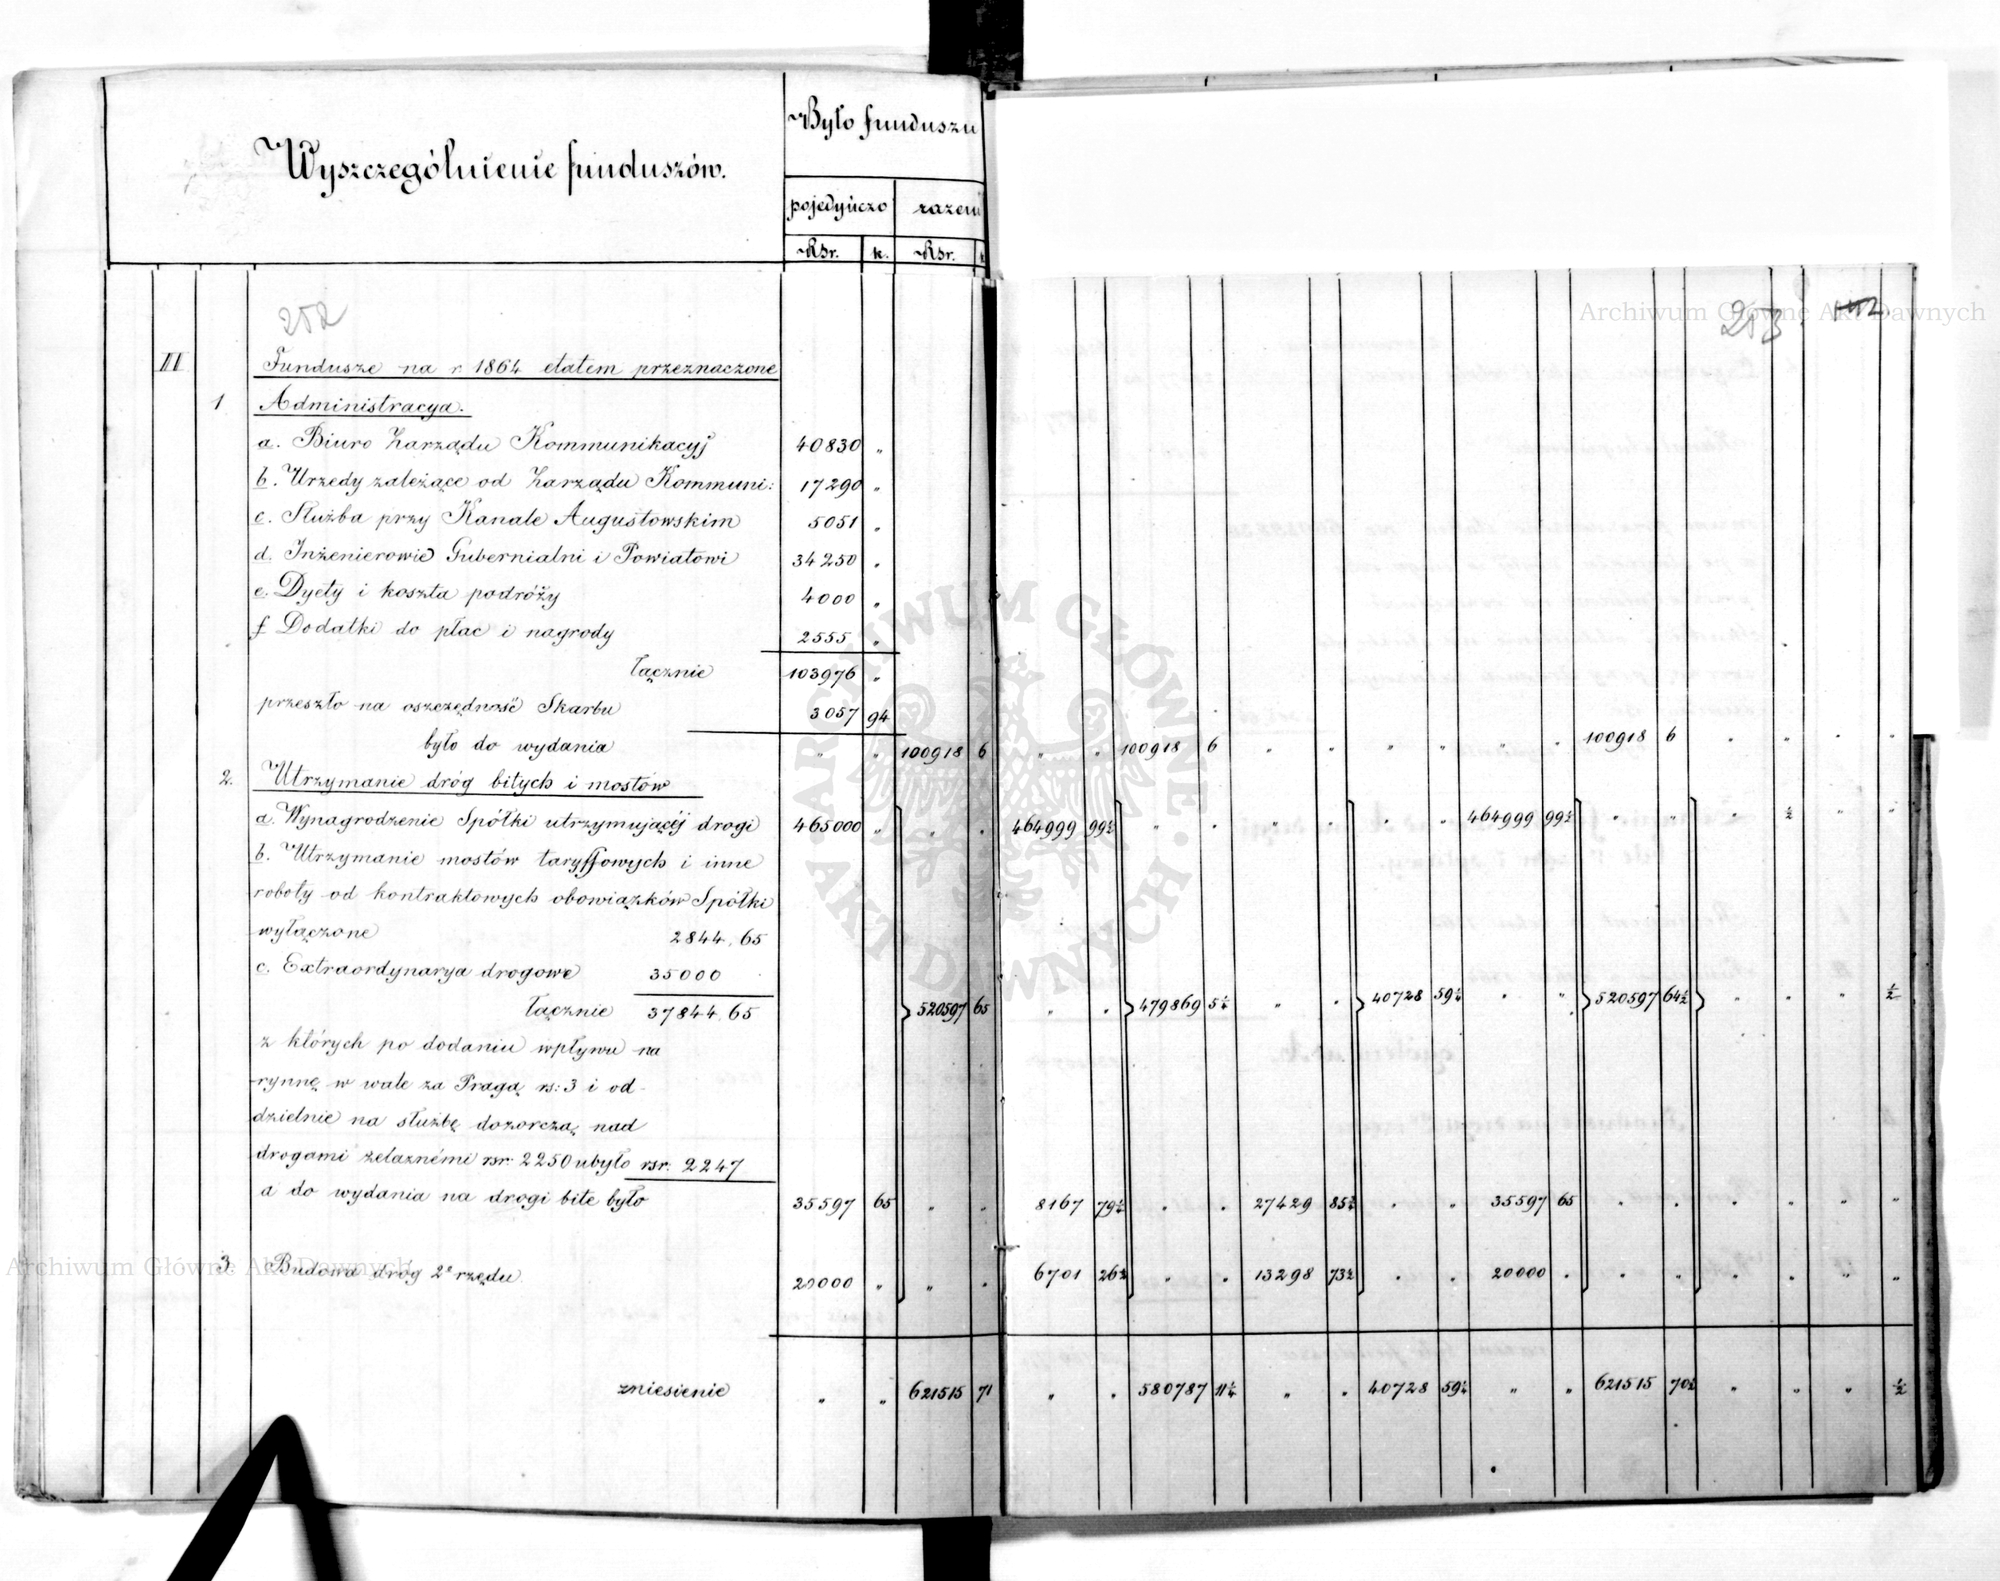 Wyszczególnienie funduszów.
Było funduszu
pojedyńczo razem
Rsr. k. Rsr. k
252
253
Archiwum Główne Akt Dawnych
II Fundusze na r 1864 etatem przeznaczone
1 Administracya.
a. Biuro Zarządu Kommunikacyj 40830 "
b. Urzędy zależące od Zarządu Kommuni: 17290 "
c. Służba przy Kanale Augustowskim 5051 "
d. Inżenierowie Gubernialni i Powiatowi 34250 "
e. Dyety i koszta podróży 4000 "
f Dodatki do płac i nagrody 2555 "
łącznie 103976 "
przeszło na oszczędność Skarbu 3057 94
było do wydania " " 100918 6 " " 100918 6 " " " " " " 100918 6 " " " "
2. Utrzymanie dróg bitych i mostów
a. Wynagrodzenie Spółki utrzymującéj drogi 465000 " " " 464999 99½ " " " " " " 464999 99½ " " " ½ " "
b. Utrzymanie mostów taryffowych i inne
roboty od kontraktowych obowiązków Spółki
wyłączone 2844. 65
c. Extraordynarya drogowe 35000
łącznie 37844. 65 520597 65 " " 479869 5¼ " " 40728 59¼ " " 520597 64½ " " " ½
z których po dodaniu wpływu na
rynnę w wale za Pragą rs: 3 i od-
dzielnie na służbę dozorczą nad
drogami żelaznémi rsr. 2250 ubyło rsr. 2247
a do wydania na drogi bite było 35597 65 " " 8167 79½ " " 27429 85½ " " 35597 65 " " " " " "
3. Budowa dróg 2º rzędu. 20000 " " " 6701 26½ " " 13298 73½ " " 20000 " " " " " " "
zniesienie " " 621515 71 " " 580787 11¼ " " 40728 59¼ " " 621515 70½ " " " ½
Archiwum Główne Akt Dawnych
ARCHIWUM GŁÓWNE
AKT DAWNYCH